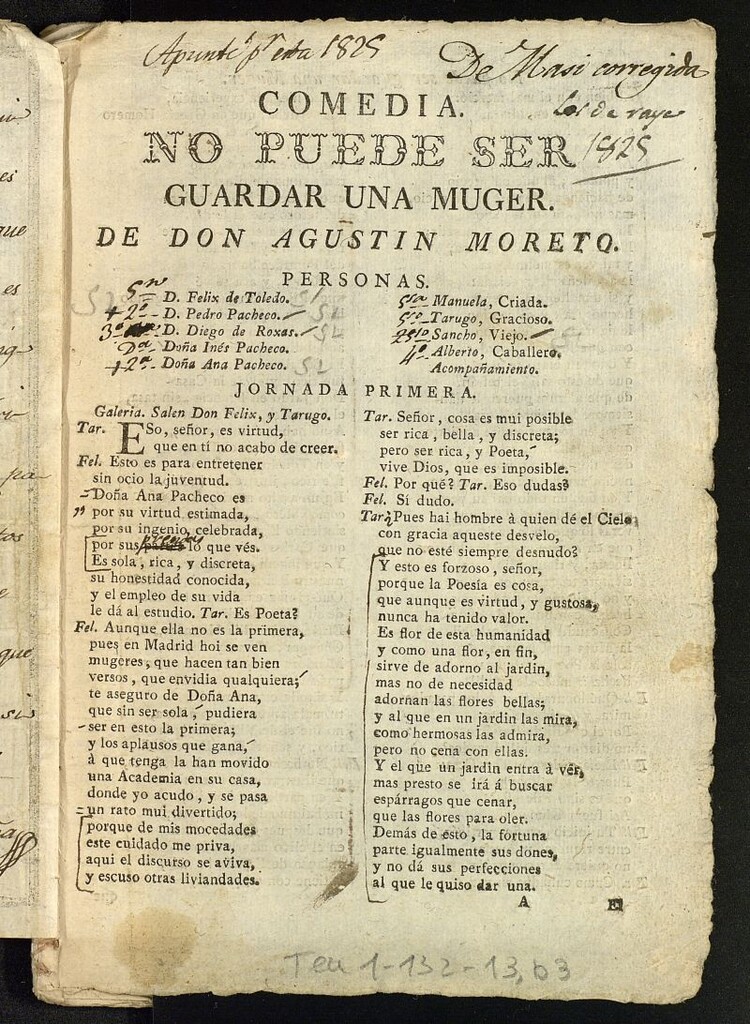 Apunte pr esta 1825
De Masi corregida
COMEDIA.
los de raya
NO PUEDE SER
1825
GUARDAR UNA MUGER.
DE DON AGUSTIN MORETO.
PERSONAS.
5º D. Felix de Toledo.
+ 2º D. Pedro Pacheco.
3º D. Diego de Roxas.
Dª Doña Inés Pacheco.
+2ª Doña Ana Pacheco.
Manuela, Criada.
Tarugo, Gracioso.
Sancho, Viejo.
4º Alberto, Caballero.
Acompañamiento.
JORNADA PRIMERA.
Galeria. Salen Don Felix, y Tarugo.
Tar. ESo, señor, es virtud,
que en tí no acabo de creer.
Fel. Esto es para entretener
sin ocio la juventud.
Doña Ana Pacheco es
por su virtud estimada,
por su ingenio celebrada,
por sus lo que vés.
Es sola, rica, y discreta,
su honestidad conocida,
y el empleo de su vida
le dá al estudio. Tar. Es Poeta?
Fel. Aunque ella no es la primera,
pues en Madrid hoi se ven
mugeres, que hacen tan bien
versos, que envidia qualquiera;
te aseguro de Doña Ana,
que sin ser sola, pudiera
ser en esto la primera;
y los aplausos que gana,
à que tenga la han movido
una Academia en su casa,
donde yo acudo, y se pasa
un rato mui divertido;
porque de mis mocedades
este cuidado me priva,
aqui el discurso se aviva,
y escuso otras liviandades.
Tar. Señor, cosa es mui posible
ser rica, bella, y discreta;
pero ser rica, y Poeta,
vive Dios, que es imposible.
Fel. Por qué? Tar. Eso dudas?
Fel. Sí dudo.
Tar. Pues hai hombre à quien dé el Cielo
con gracia aqueste desvelo,
que no esté siempre desnudo?
Y esto es forzoso, señor,
porque la Poesía es cosa,
que aunque es virtud, y gustosa,
nunca ha tenido valor.
Es flor de esta humanidad
y como una flor, en fin,
sirve de adorno al jardin,
mas no de necesidad
adornan las flores bellas;
y al que en un jardin las mira,
como hermosas las admira,
pero no cena con ellas.
Y el que un jardin entra à vér,
mas presto se irá á buscar
espárragos que cenar,
que las flores para oler.
Demás de esto, la fortuna
parte igualmente sus dones,
y no dá sus perfecciones
al que le quiso dar una.
A
El
Tea 1-132-13, b3